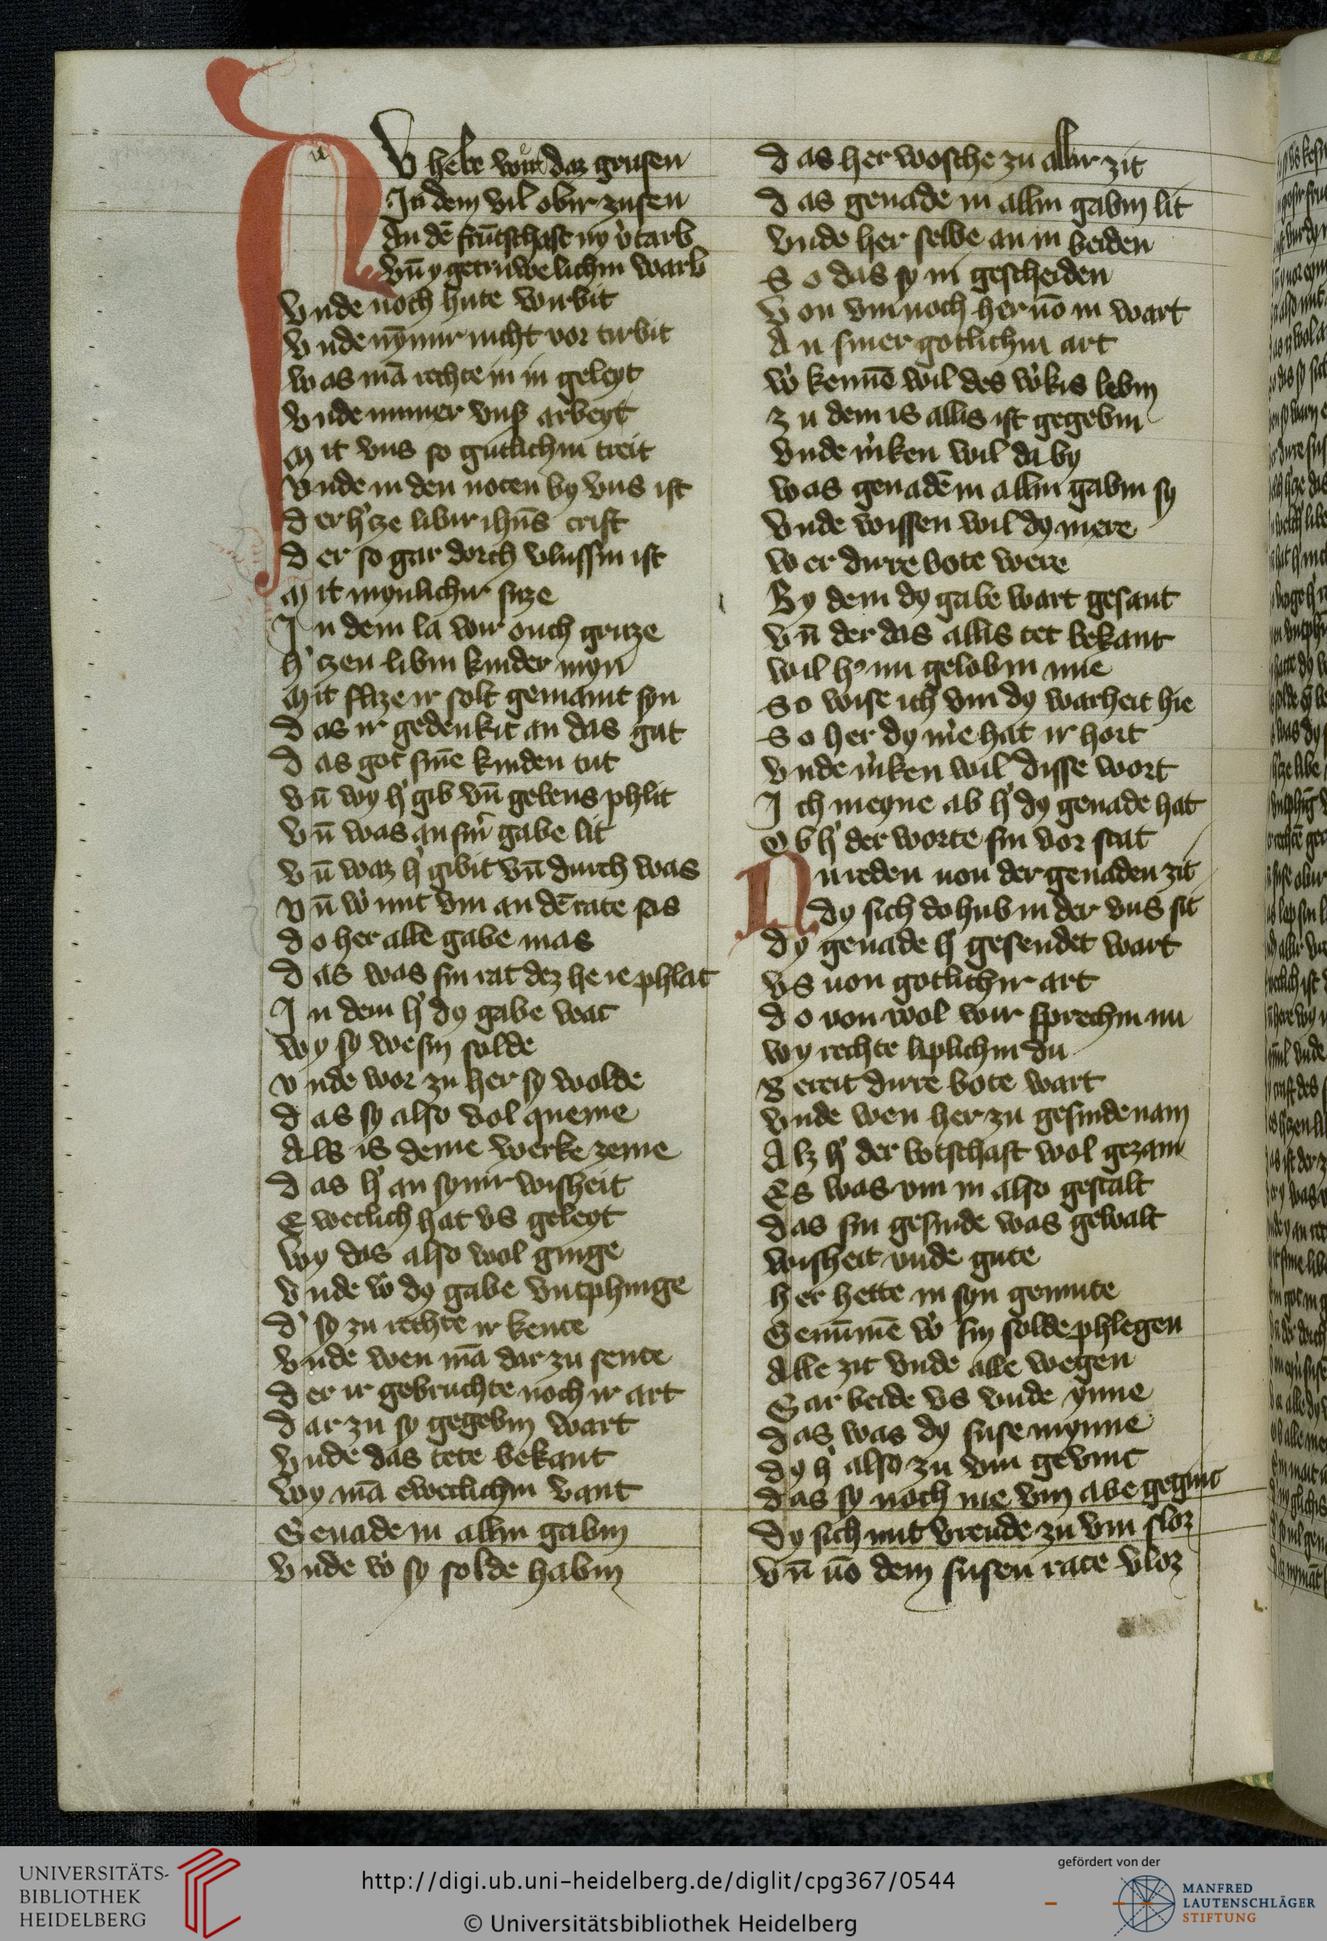 NV hebe wir daz grusen
In dem vil obir zusen
An dē frūtschaft ny v'tarb
Vn̄ y getruwelichin warb
Vnde noch hute wirbit
Vnde nȳmir nicht vor tirbit
Was mā rechte in in geleyt
Vnde nimer vnß arbeyt
Mit vns so gutlichin treit
Vnde in den noten by vns ist
Der h'ze libir ihūs crist
Der so gar dorch vlussin ist
Mit mynlichir suze
In dem la wir ouch gruze
H'tzen libin kinder myn
Mit flize ir solt gemant syn
Das ir gedenkit an das gut
Das got sinē kinden tut
Vn̄ wy h' gib vn̄ gebens phlit
Vn̄ was an sin' gabe lit
Vn̄ waz h' gibit vn̄ durch was
Vn̄ w' mit vm an dē rate sas
Do her alle gabe mas
Das was sin rat dez he ie phlat
In dem h' dy gabe wat
Wy sy wesin solde
Vnde wor zu her sy wolde
Das sy also vol queme
Als is deme werke zeme
Das h' an synir wisheit
Ewetlich hat vs geleyt
Wy das also wol ginge
Vnde w' dy gabe vntphinge
D' sy zu rechte ir kente
Vnde wen mā dar zu sente
Der ir gebruchte noch ir art
Dar zu sy gegebin wart
Vnde das tete bekant
Wy mā ewetlichin vant
Genade in allin gabin
Vnde w' sy solde habin
Das her wosche zu allir zit
Das genade in allin gabin lit
Vnde her selbe an in beiden
So das sy ni gescheiden
Von vm noch her vō in wart
An siner gotlichin art
W' kennē wil des w'kis lebin
Zu dem is allis ist gegebin
Vnde m'ken wil da by
Was genadē in allin gabin sy
Vnde wissen wil dy mere
Wer dirre bote were
By dem dy gabe wart gesant
Vn̄ der das allis tet bekant
Wil h' mi gelobin mie
So wise ich vm dy warheit hie
So her dy m'e hat ir hort
Vnde m'ken wil disse wort
Ich meyne ab h' dy genade hat
Ob h' der worte sin vor stat
Nu reden von der genaden zit
Dy sich do hub in der vns sit
Dy genade h' gesendet wart
Vs von gotlichir art
Do von wol wir sprechin nu
Wy rechte liplichin du
Bereit dirre bote wart
Vnde wen her zu gesinde nam
Alz h' der botschaft wol gezam
Es was vm in also gestalt
Das sin gesinde was gewalt
Wisheit vnde gute
Her hette in syn gemute
Genūmē w' sin solde phlegen
Alle zit vnde alle wegen
Gar beide vs vnde ynne
Das was dy suse mynne
Dy h' also zu vm gevint
Das sy noch nie vm abe gegint
Dy sich mit vreude zu vm sloz
Vn̄ vō dem susen rate vloz
UNIVERSITÄTS-
BIBLIOTHEK
HEIDELBERG
http://digi.ub.uni-heidelberg.de/diglit/cpg367/0544
© Universitätsbibliothek Heidelberg
gefördert von der
MANFRED
LAUTENSCHLÄGER
STIFTUNG